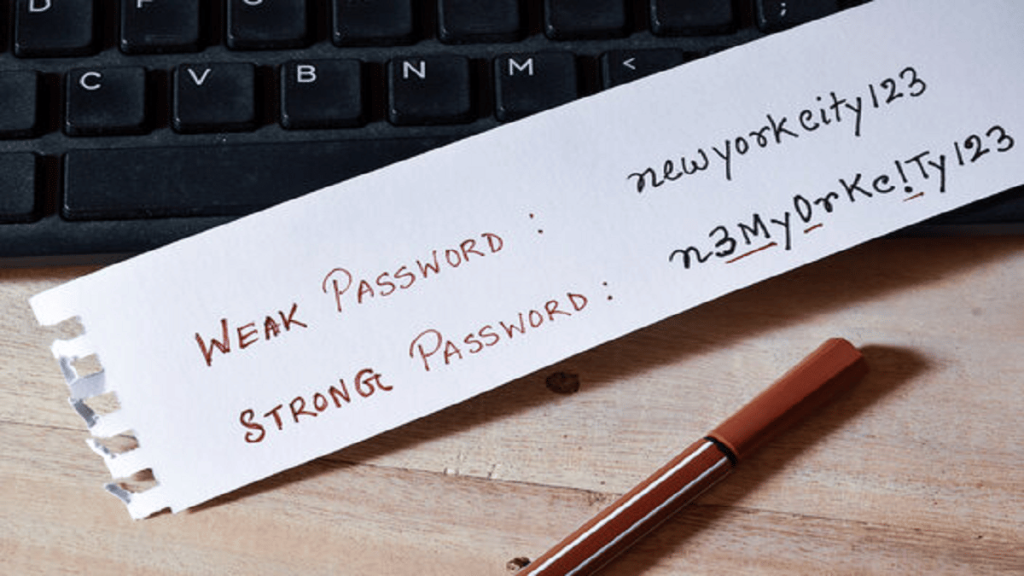 C V B N M <
WEAK PASSWORD : newyorkcity123
STRONG PASSWORD : n3My0rKc!Ty123